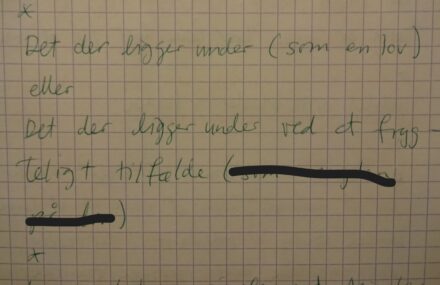 *
Det der ligger under (som en lov)
eller
Det der ligger under ved et frygt-
teligt tilfælde (
)
*